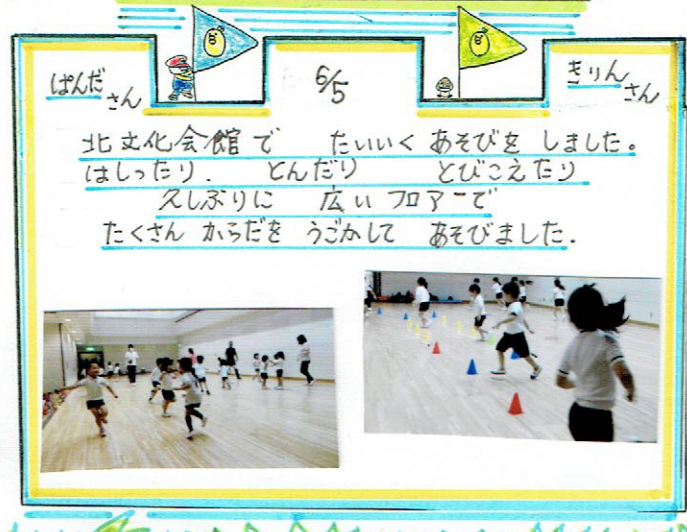 ぱんださん
6/5
きりんさん
北文化会館で たいいくあそびをしました。
はしったり. とんだり とびこえたり
久しぶりに 広いフロアーで
たくさん からだを うごかして あそびました.